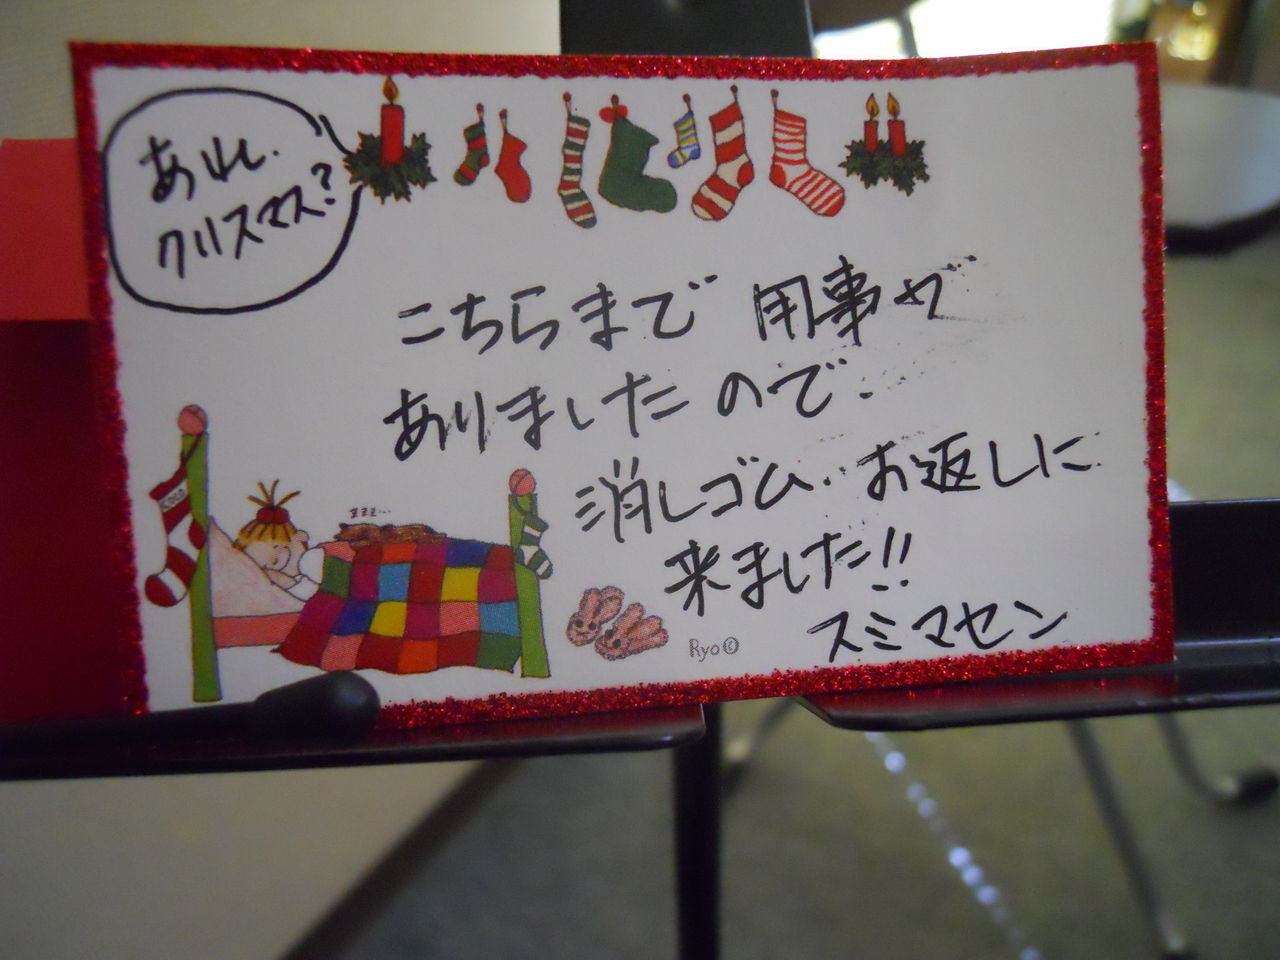 あれ.
クリスマス?
こちらまで 用事が
ありましたので.
消しゴム.. お返しに
来ました!!
スミマセン
zzz...
Ryo©